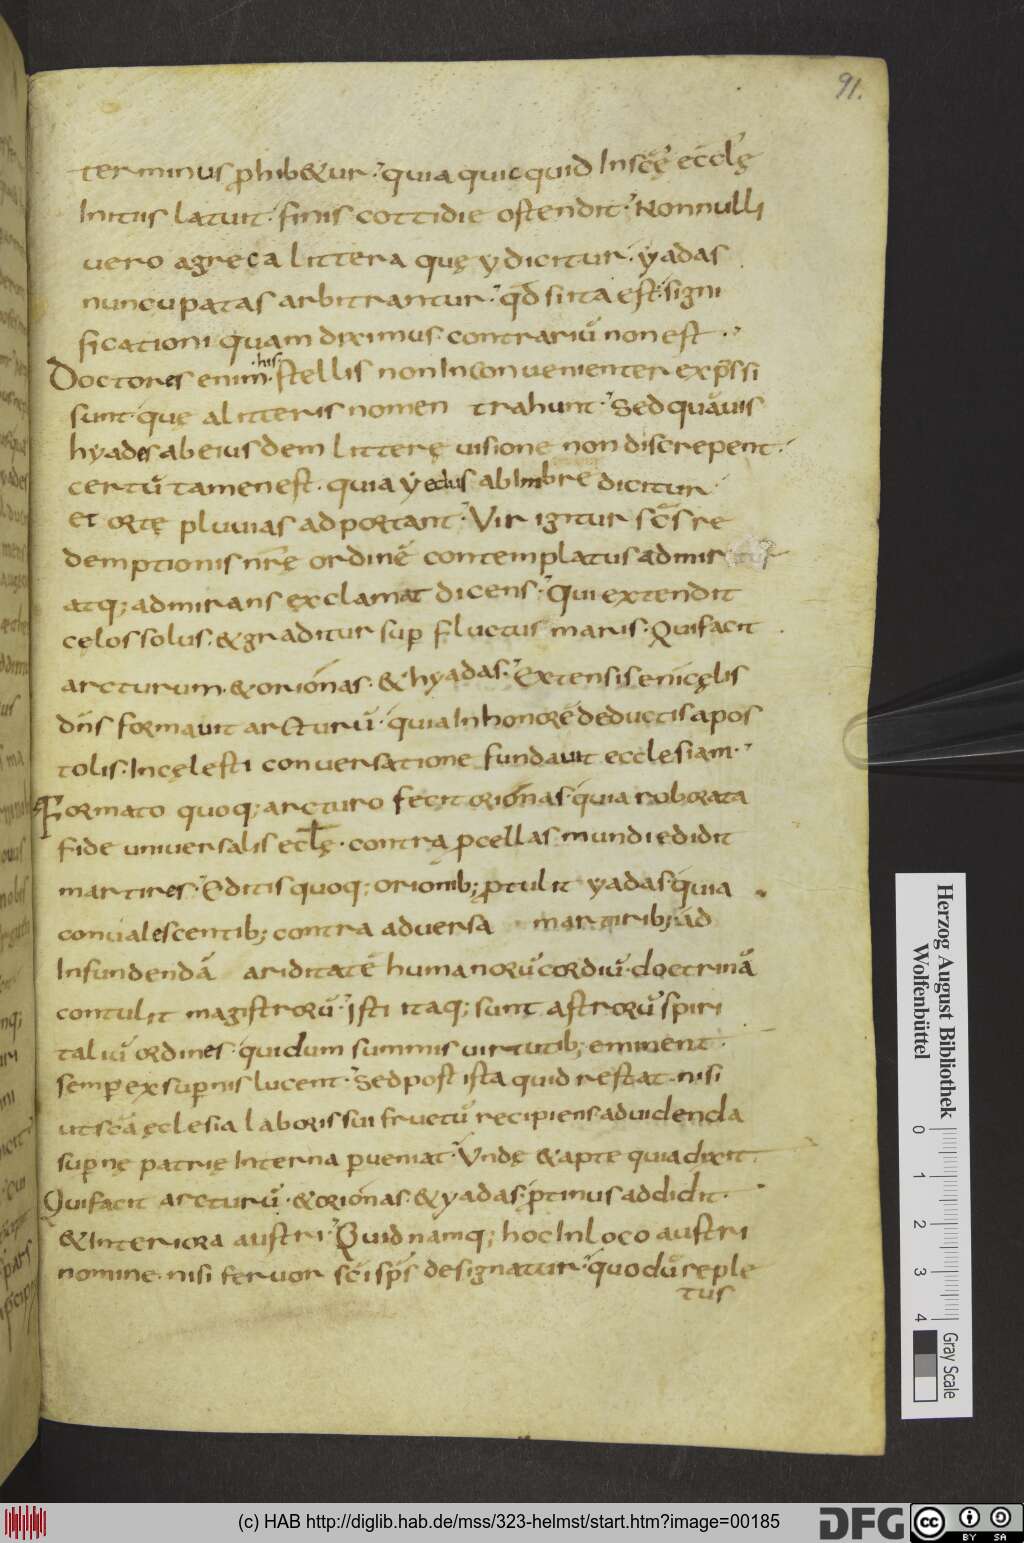 91.
terminus ꝓhib&ur. quia quicquid In sc̄ę eccl̄ę
Initiis latuit. finis cottidie ostendit. Nonnulli
uero agreca littera quę y dicitur. yadas
nuncupatas arbitrantur. qđ si ita est. signi
ficationi quam diximus contrariū non est.
Doctores enim his stellis non Inconuenienter exp̄ssi
sunt. quę alitteris nomen trahunt. Sed quāuis
hyades ab eiusdem litterę uisione non discrepent.
certū tamen est. quia yedus ab Imbre dicitur
et ortę pluuias adportant. Vir igitur sc̄s re
demptionis nr̄ę ordinē contemplatus admir
atq; admirans exclamat dicens. Qui extendit
cęlos solus. & graditur sup̄ fluctus maris. Qui facit
arcturum. & orionas. & hyadas. Extensis eni cęlis
dn̄s formauit arcturū. quia In honorē deductis apos
tolis. In cęlesti conuersatione fundauit ecclesiam.
Formato quoq; arcturo fecit orionas. quia roborata
fide uniuersalis eclę. contra p̄cellas mundi edidit
martires. Editis quoq; orionib; ꝓtulit yadas. quia
conualescentib; contra aduersa martirib; ad
Infundendā ariditatē humanorū cordiū. doctrinā
contulit magistrorū. Isti itaq; sunt astrorū spiri
taliū ordines. qui dum summis uirtutib; eminent.
semp̄ ex sup̄nis lucent. Sed post ista quid restat. nisi
ut sc̄a ęclesia laboris sui fructū recipiens ad uidenda
sup̄nę patrię Interna p̄ueniat. Vndę & apte quia dixit.
Qui facit arcturū. & orionas. & yadas. ꝓtinus addidit.
& Interiora austri. Quid namq; hoc In loco austri
nomine. nisi feruor sc̄i sp̄s designatur. quo dū reple
tus
Herzog August Bibliothek
Wolfenbüttel
0 1 2 3 4
Gray Scale
(c) HAB http://diglib.hab.de/mss/323-helmst/start.htm?image=00185
DFG
cc
BY SA